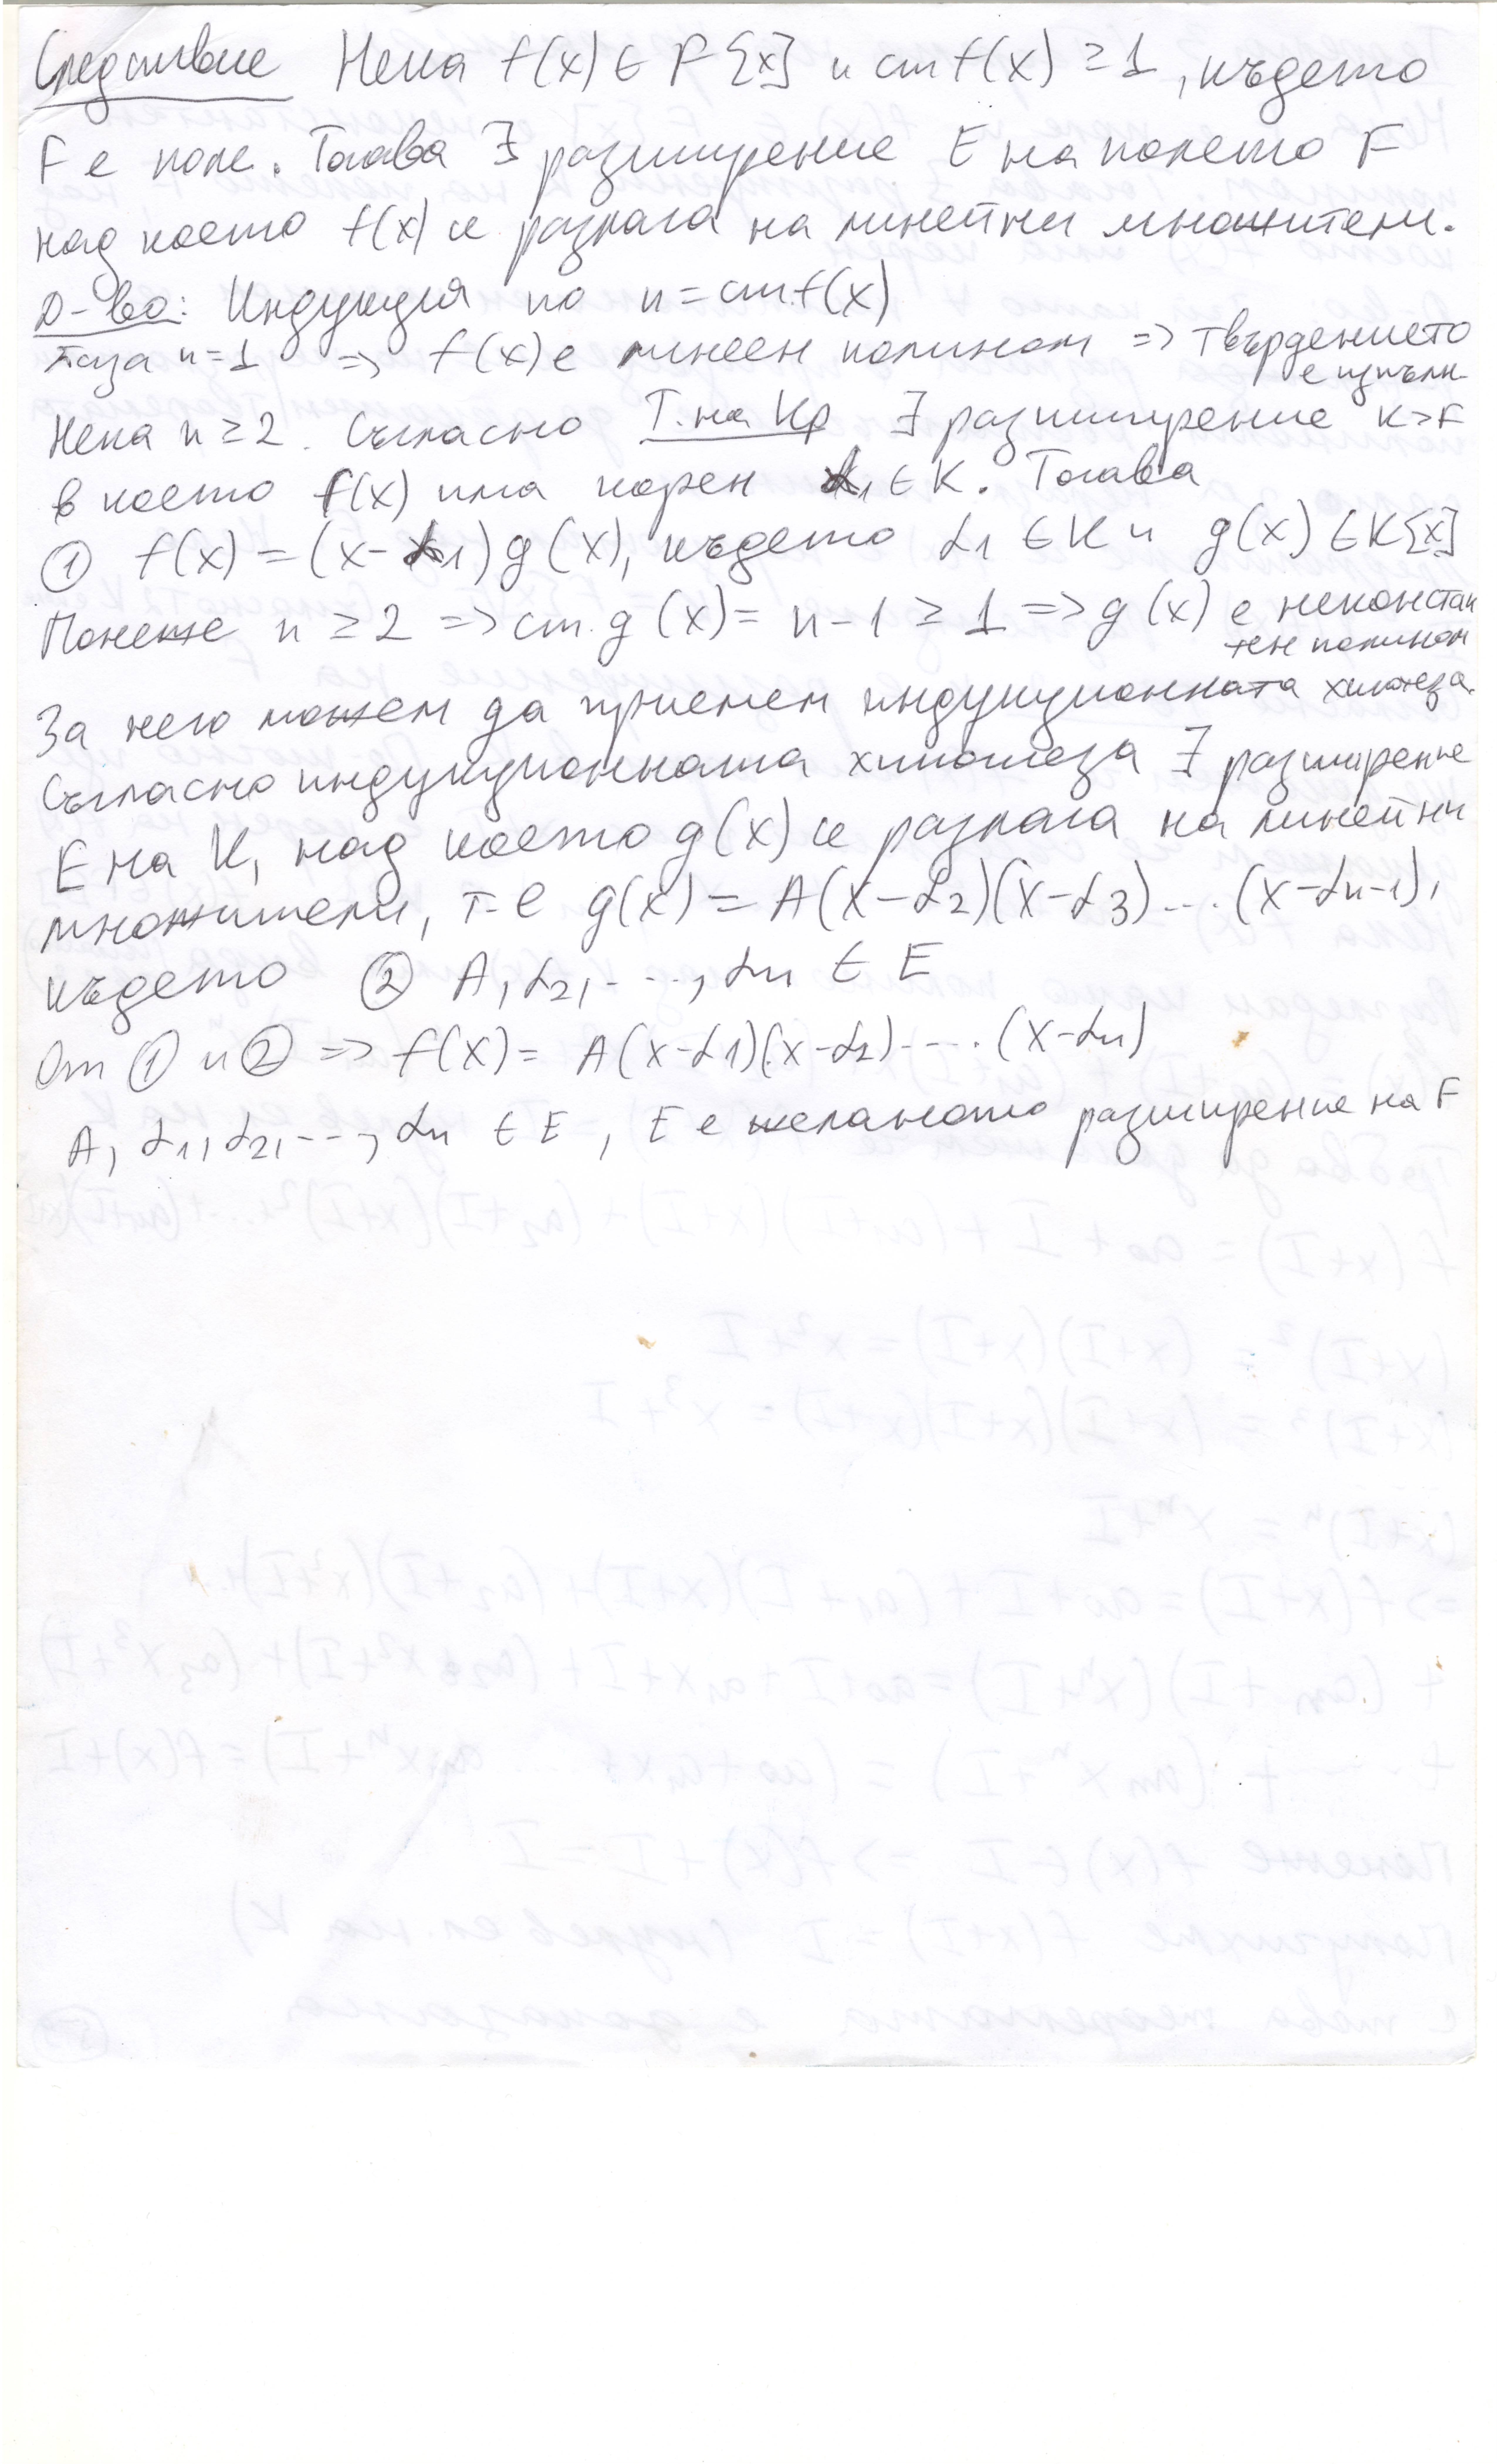 Следствие Нека f(x) ∈ F[x] и ст f(x) ≥ 1, където
F е поле. Тогава ∃ разширение E на полето F
над което f(x) се разлага на линейни множители.
Д-во: Индукция по n = ст f(x)
База n=1 => f(x) е линеен полином => твърдението
е изпълн.
Нека n ≥ 2. Съгласно Т. на Кр ∃ разширение K > F
в което f(x) има корен α1 ∈ K. Тогава
① f(x) = (x-α1) g(x), където α1 ∈ K и g(x) ∈ K[x]
Понеже n ≥ 2 => ст. g(x) = n-1 ≥ 1 => g(x) е неконстан
тен полином
За него можем да приемем индукционната хипотеза.
Съгласно индукционната хипотеза ∃ разширение
E на K, над което g(x) се разлага на линейни
множители, т-е g(x) = A(x-α2)(x-α3)...(x-αn-1),
където ② A, α2, ..., αn ∈ E
От ① и ② => f(x) = A(x-α1)(x-α2)....(x-αn)
A, α1, α2, ..., αn ∈ E, E е желаното разширение на F